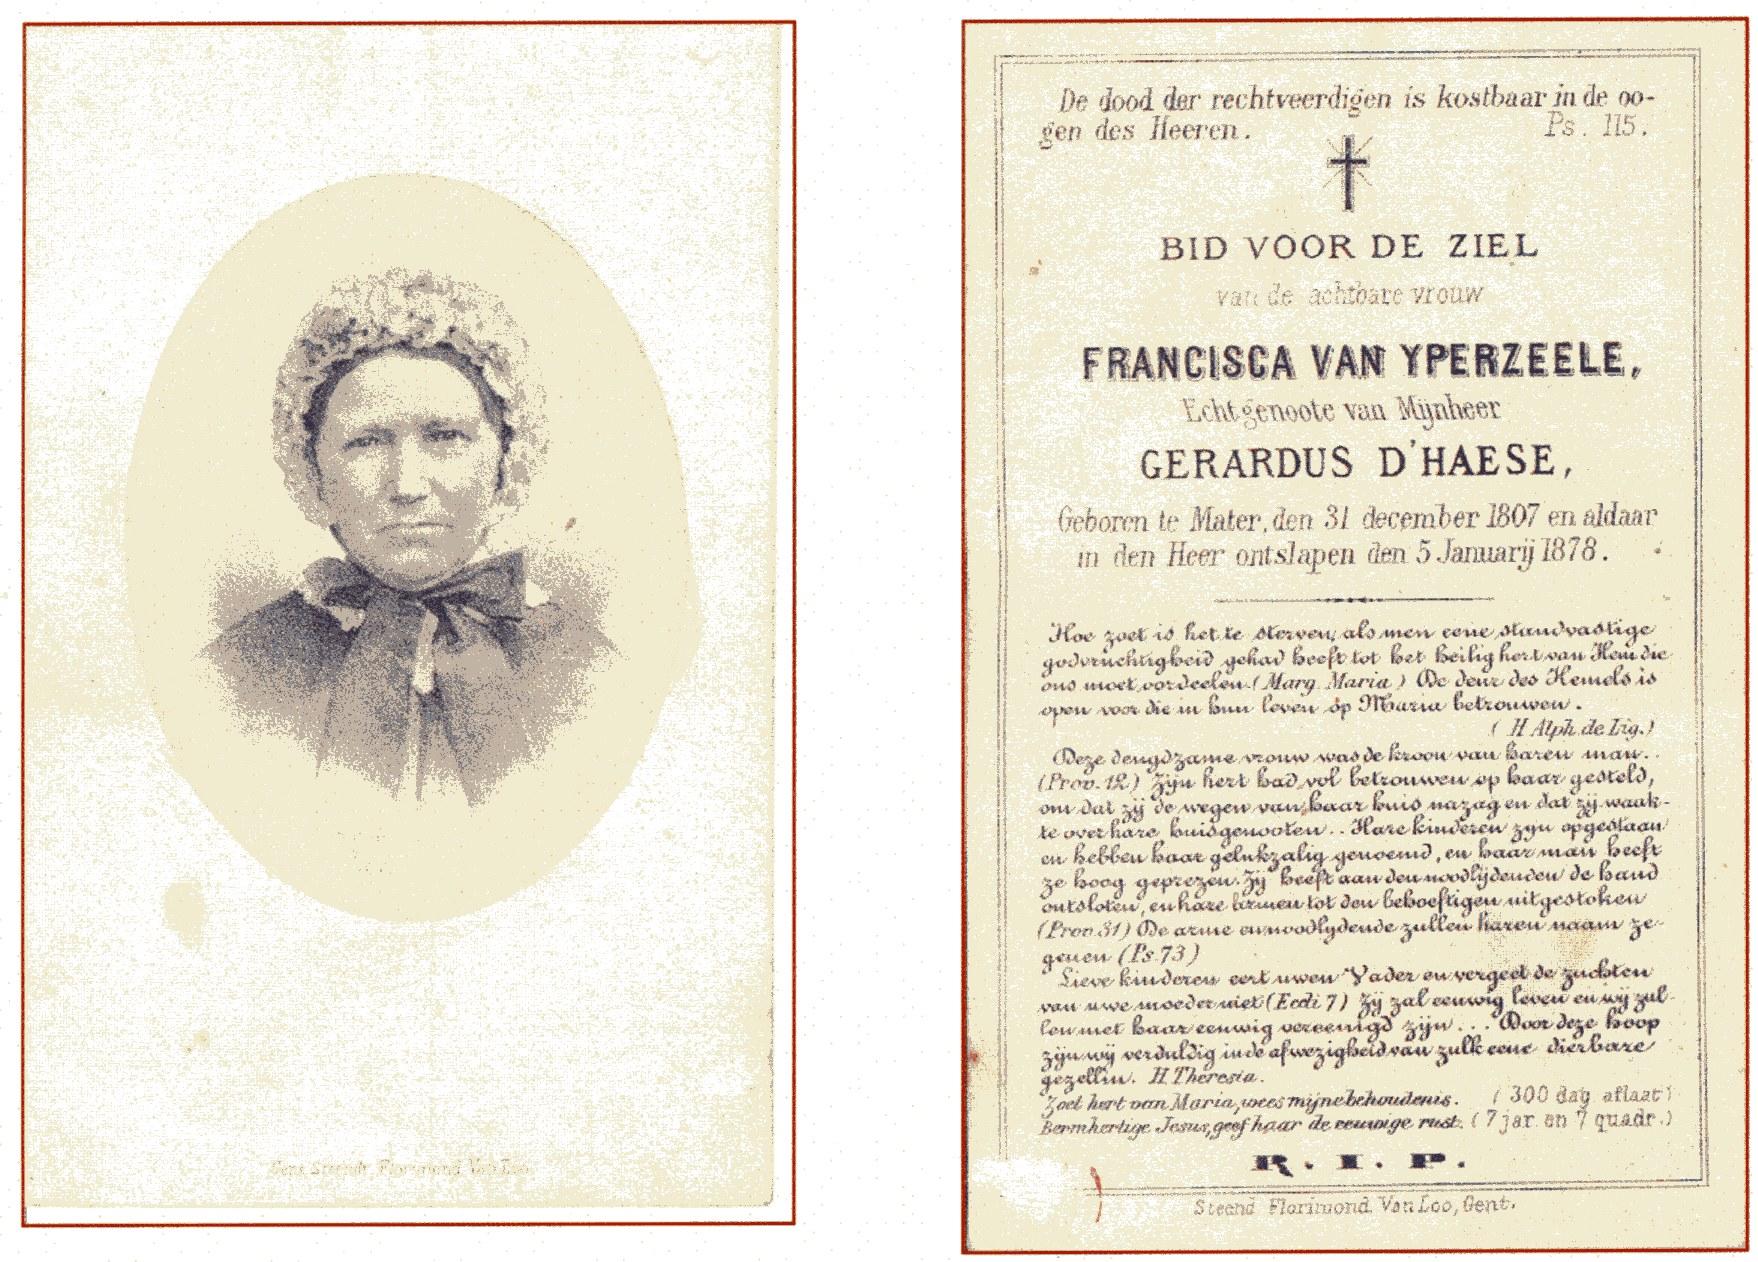 Gent Steendr. Florimond Van Loo.
De dood der rechtveerdigen is kostbaar in de oo-
gen des Heeren. Ps. 115.
BID VOOR DE ZIEL
van de achtbare vrouw
FRANCISCA VAN YPERZEELE,
Echtgenoote van Mijnheer
GERARDUS D'HAESE,
Geboren te Mater, den 31 december 1807 en aldaar
in den Heer ontslapen den 5 Januarij 1878.
Hoe zoet is het te sterven, als men eene standvastige
godvruchtigheid gehad heeft tot het heilig hert van Hem die
ons moet oordeelen. (Marg. Maria) De deur des Hemels is
open voor die in hun leven op Maria betrouwen.
(H Alph. de Lig.)
Deze deugdzame vrouw was de kroon van haren man..
(Prov. 12) Zyn hert had vol betrouwen op haar gesteld,
om dat zij de wegen van haar huis nazag en dat zij waak-
te over hare huisgenooten.. Hare kinderen zyn opgestaan
en hebben haar gelukzalig genoemd, en haar man heeft
ze hoog geprezen. Zij heeft aan den noodlijdenden de hand
ontsloten, en hare armen tot den behoeftigen uitgestoken
(Prov. 31) De arme en noodlydende zullen haren naam ze-
genen (Ps. 73)
Lieve kinderen eert uwen Vader en vergeet de zuchten
van uwe moeder niet (Eccli 7) Zij zal eeuwig leven en wij zul-
len met haar eeuwig vereenigd zijn... Door deze hoop
zijn wij verduldig in de afwezigheid van zulk eene dierbare
gezellin. H Theresia.
Zoet hert van Maria, wees mijne behoudenis. (300 dag aflaat)
Bermhertige Jesus, geef haar de eeuwige rust. (7 jar en 7 quadr.)
R. I. P.
Steend Florimond Van Loo, Gent.